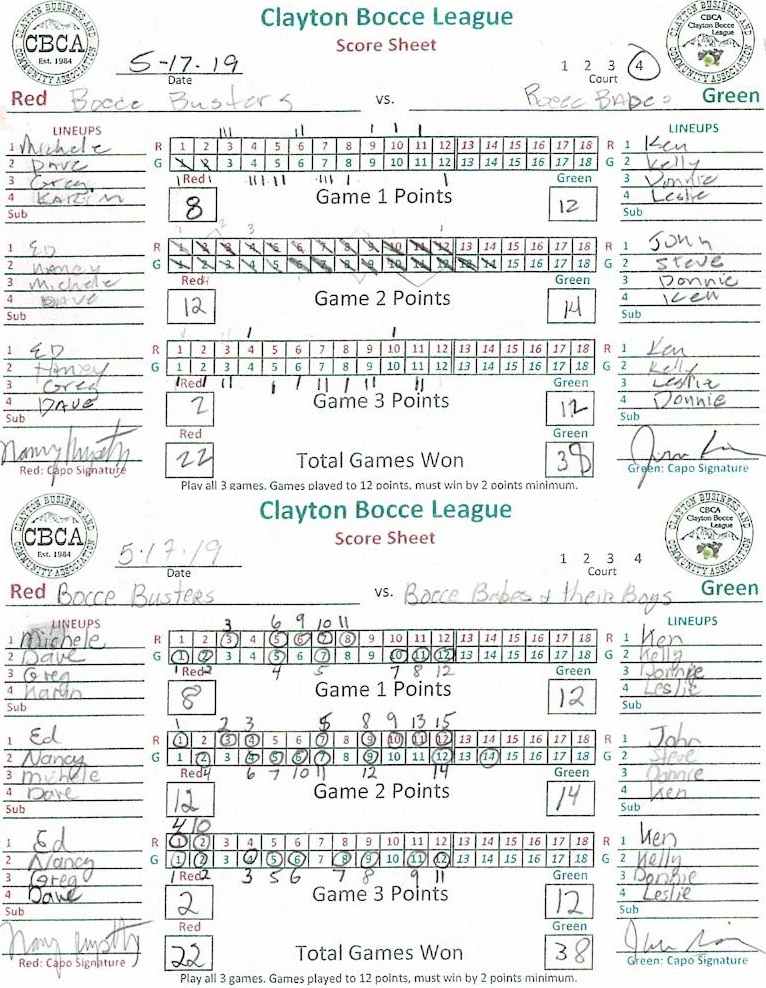 Clayton Bocce League
Score Sheet
CLAYTON BUSINESS AND COMMUNITY ASSOCIATION
CBCA
Est. 1984
CBCA
Clayton Bocce
League
5-17-19
Date
1 2 3 4
Court
Red Bocce Busters vs. Green
LINEUPS
1 Michele
2 Dave
3 Greg
4 Karin
Sub
R 1 2 3 4 5 6 7 8 9 10 11 12 13 14 15 16 17 18 R
G 1 2 3 4 5 6 7 8 9 10 11 12 13 14 15 16 17 18 G
Red Game 1 Points Green
8 12
LINEUPS
1 Ken
2 Kelly
3 Donnie
4 Leslie
Sub
1 ED
2 Nancy
3 Michele
4 Dave
Sub
R 1 2 3 4 5 6 7 8 9 10 11 12 13 14 15 16 17 18 R
G 1 2 3 4 5 6 7 8 9 10 11 12 13 14 15 16 17 18 G
Red Game 2 Points Green
12 14
1 John
2 Steve
3 Donnie
4 Ken
Sub
1 ED
2 Nancy
3 Greg
4 DAVE
Sub
R 1 2 3 4 5 6 7 8 9 10 11 12 13 14 15 16 17 18 R
G 1 2 3 4 5 6 7 8 9 10 11 12 13 14 15 16 17 18 G
Red Game 3 Points Green
2 12
1 Ken
2 Kelly
3 Leslie
4 Donnie
Sub
Red Green
22 Total Games Won 38
Red: Capo Signature
Green: Capo Signature
Play all 3 games. Games played to 12 points, must win by 2 points minimum.
Clayton Bocce League
Score Sheet
CLAYTON BUSINESS AND COMMUNITY ASSOCIATION
CBCA
Est. 1984
CBCA
Clayton Bocce
League
5-17-19
Date
1 2 3 4
Court
Red Bocce Busters vs. Bocce Babes & their Boys Green
LINEUPS
1 Michele
2 Dave
3 Greg
4 Karin
Sub
3 6 9 10 11
R 1 2 3 4 5 6 7 8 9 10 11 12 13 14 15 16 17 18 R
G 1 2 3 4 5 6 7 8 9 10 11 12 13 14 15 16 17 18 G
1 Red 2 4 5 7 8 12 Green
8 Game 1 Points 12
LINEUPS
1 Ken
2 Kelly
3 Donnie
4 Leslie
Sub
1 Ed
2 Nancy
3 Michele
4 Dave
Sub
1 2 3 5 8 9 13 15
R 1 2 3 4 5 6 7 8 9 10 11 12 13 14 15 16 17 18 R
G 1 2 3 4 5 6 7 8 9 10 11 12 13 14 15 16 17 18 G
Red 4 6 7 10 11 12 14 Green
12 Game 2 Points 14
1 John
2 Steve
3 Donnie
4 Ken
Sub
1 Ed
2 Nancy
3 Greg
4 Dave
Sub
4 10
R 1 2 3 4 5 6 7 8 9 10 11 12 13 14 15 16 17 18 R
G 1 2 3 4 5 6 7 8 9 10 11 12 13 14 15 16 17 18 G
1 Red 2 3 5 6 7 8 9 11 Green
2 Game 3 Points 12
1 Ken
2 Kelly
3 Donnie
4 Leslie
Sub
Red Green
22 Total Games Won 38
Red: Capo Signature
Green: Capo Signature
Play all 3 games. Games played to 12 points, must win by 2 points minimum.